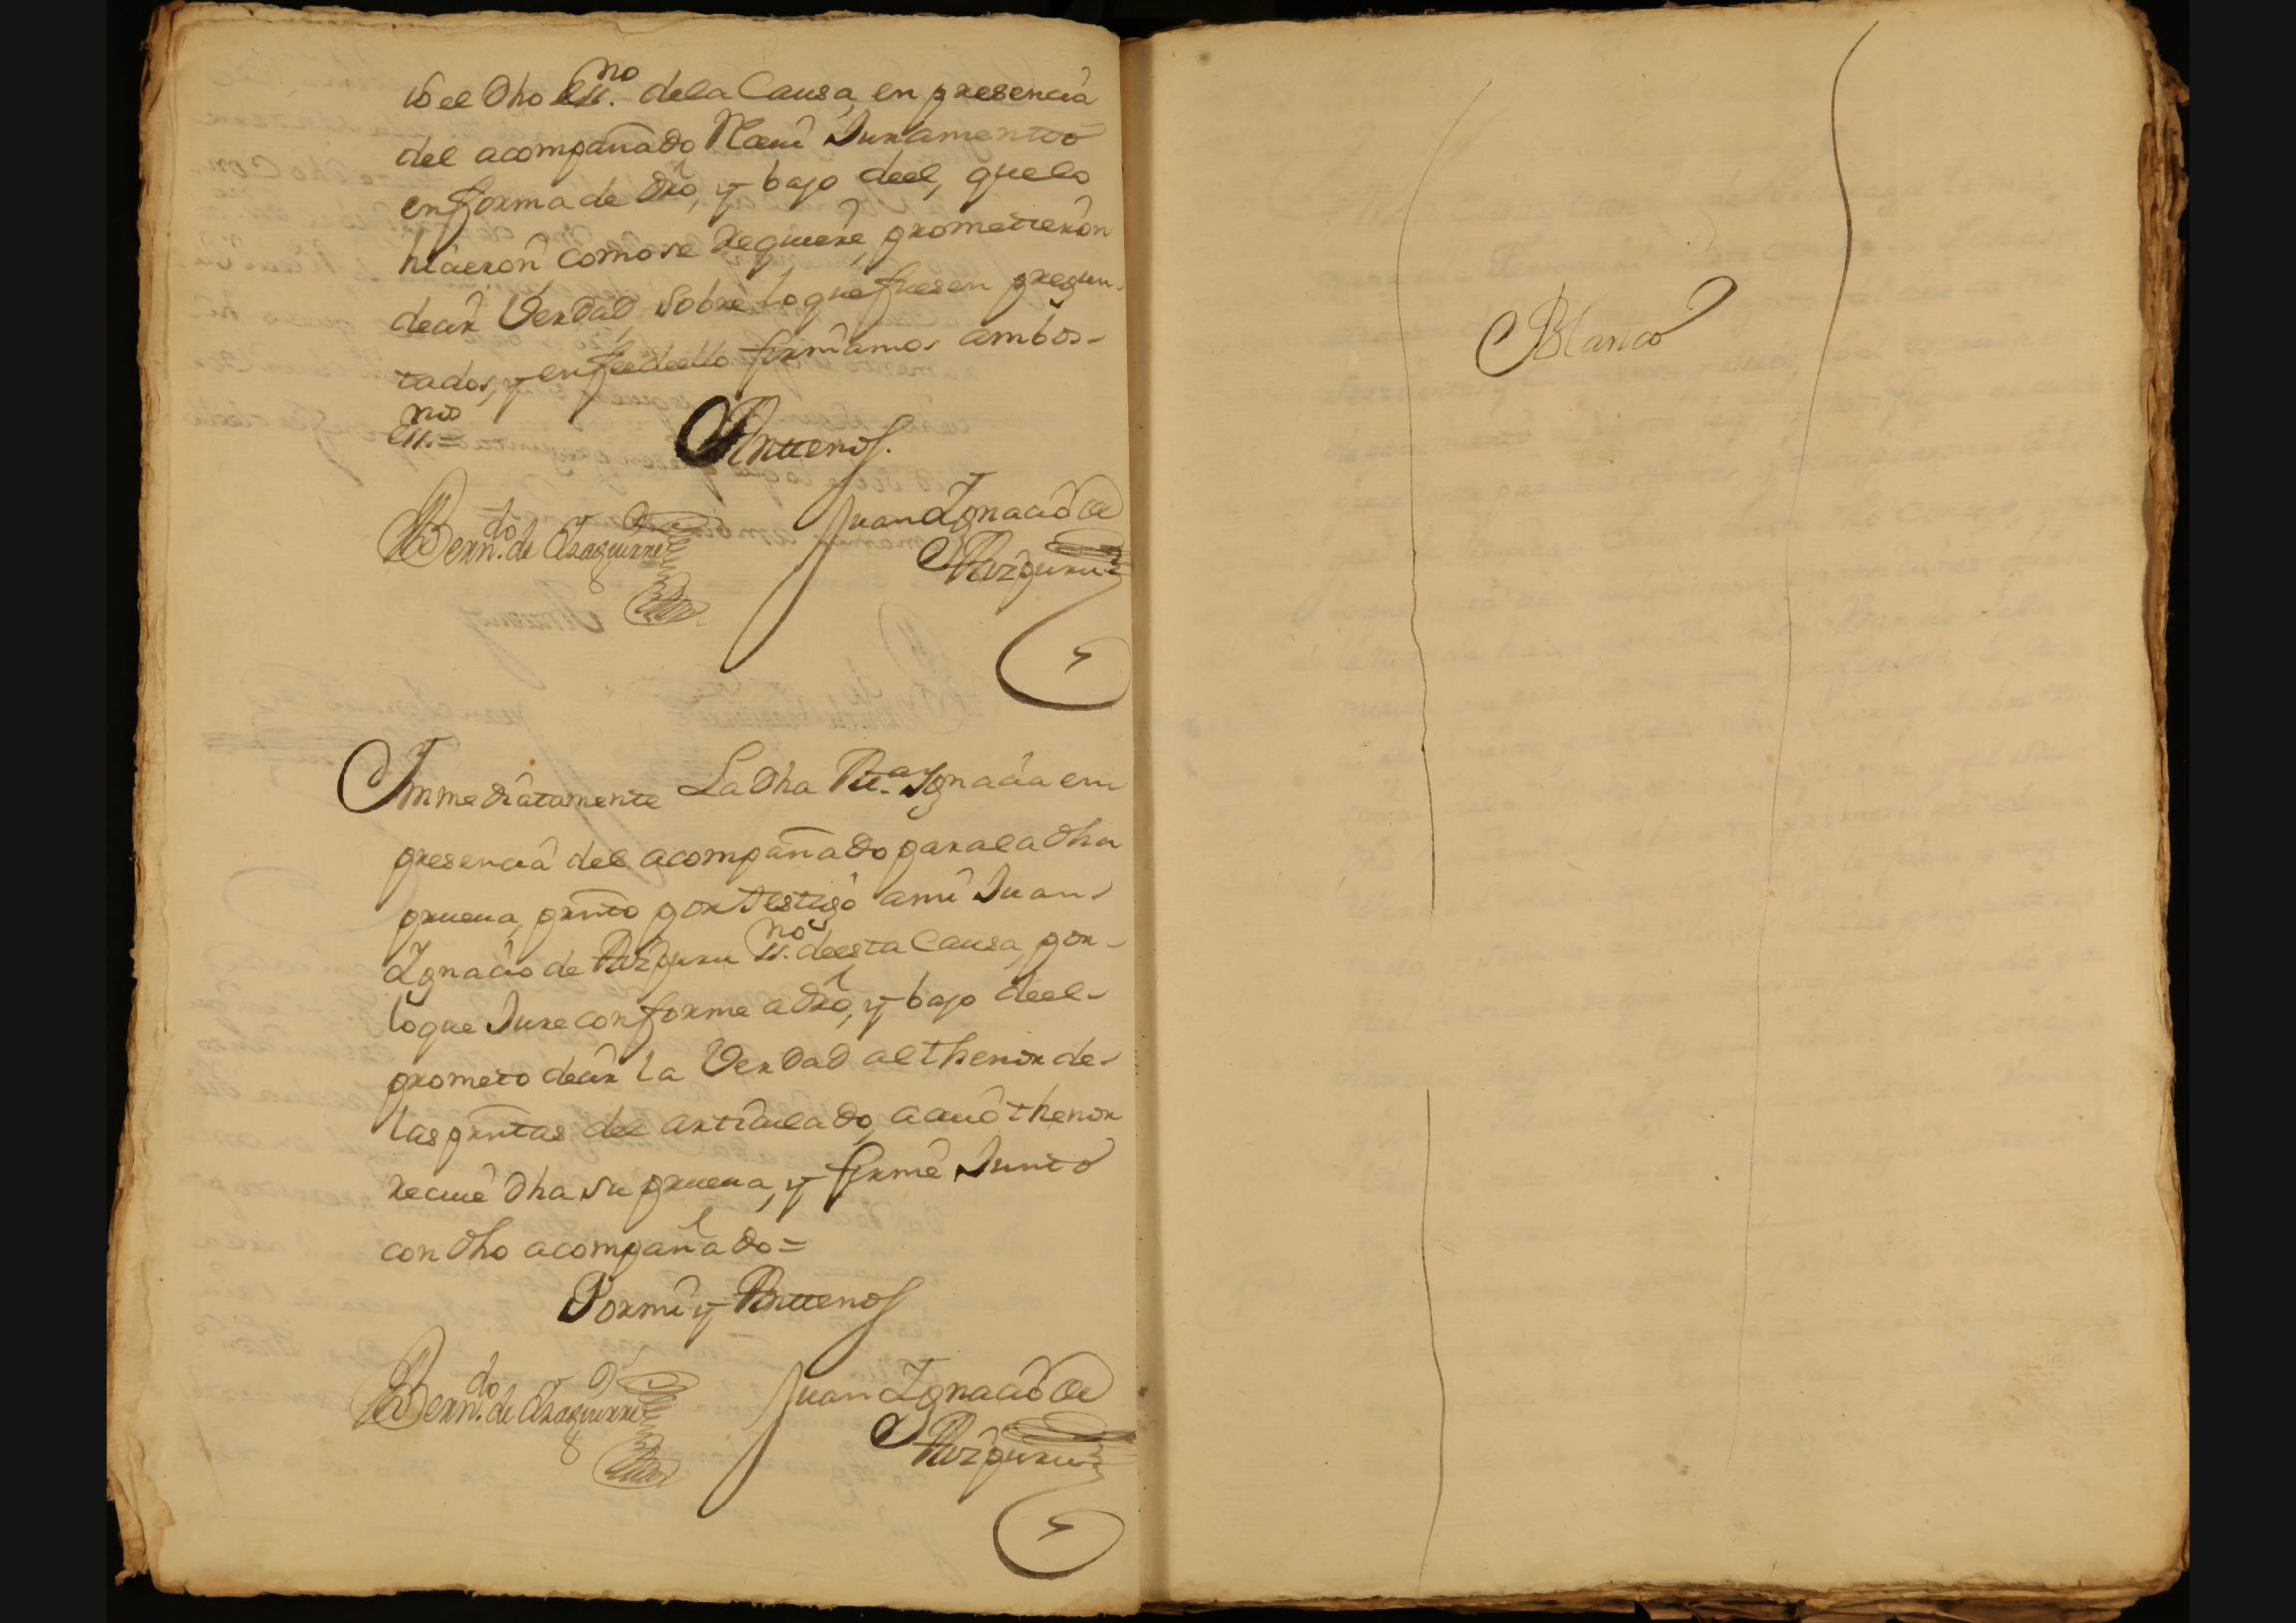 io el Dho ess.no dela Causa, en presencia
del acompañado Reciui Juramento
en forma de Dro, y bajo deel, que lo
hicieron como se requiere, prometieron
decir Verdad, Sobre lo que fuesen pregun-
tados, y en fee dello firmamos ambos-
ess.nos =
Antemos.
Bern.do de Yraguirre
Juan Ignacio de
Aizpuru
Immediatamente La Dha M.a Ignacia en
presencia del acompañado para la dha
prueua, prnto por testigo a mi Juan
Ignacio de Aizpuru ss.no deesta Causa, por-
loque Jure conforme a Dro, y bajo deel-
prometo decir la Verdad al thenor de-
las prntas del articulado, a cuio thenor
reciuê Dha su prueua, y firmê Junto
con dho acompañado =
Por mi y Antemos
Bern.do de Yraguirre
Juan Ignacio de
Aizpuru
Blanco